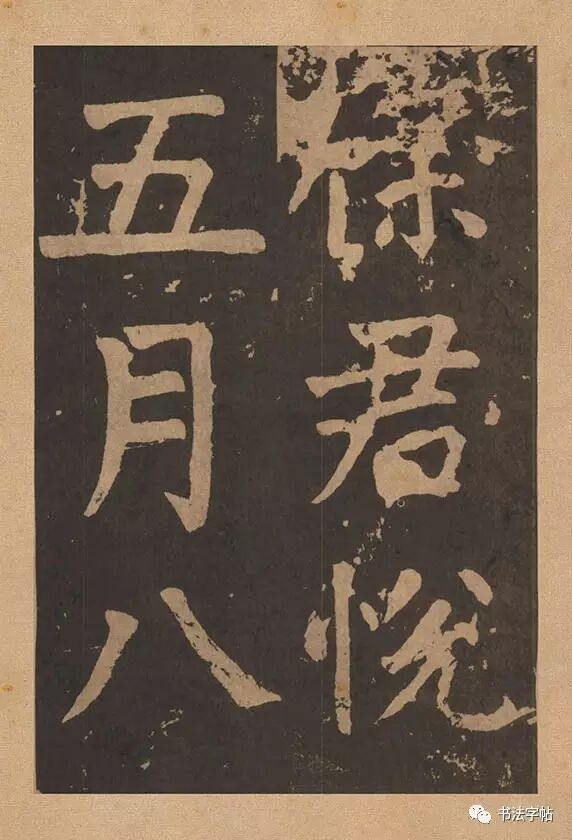 君悦
五月八
书法字帖